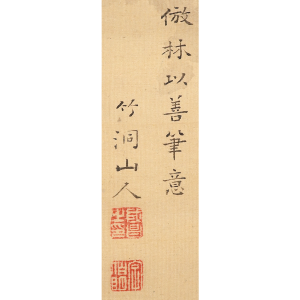 倣林以善筆意
竹洞山人